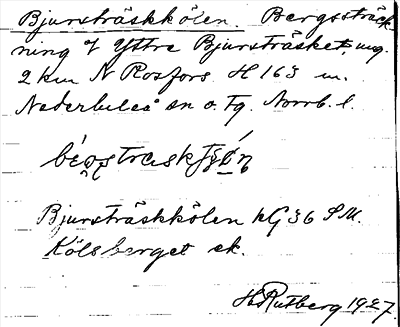 Bjursträskkölen. Bergssträck-
ning V Yttre Bjursträsket, ung.
2 km N Rosfors. H 163 m.
Nederluleå sn o. tg. Norrb. l.
Bjursträskkölen kG36 SM.
Kölsberget ek.
H Rutberg 1927.